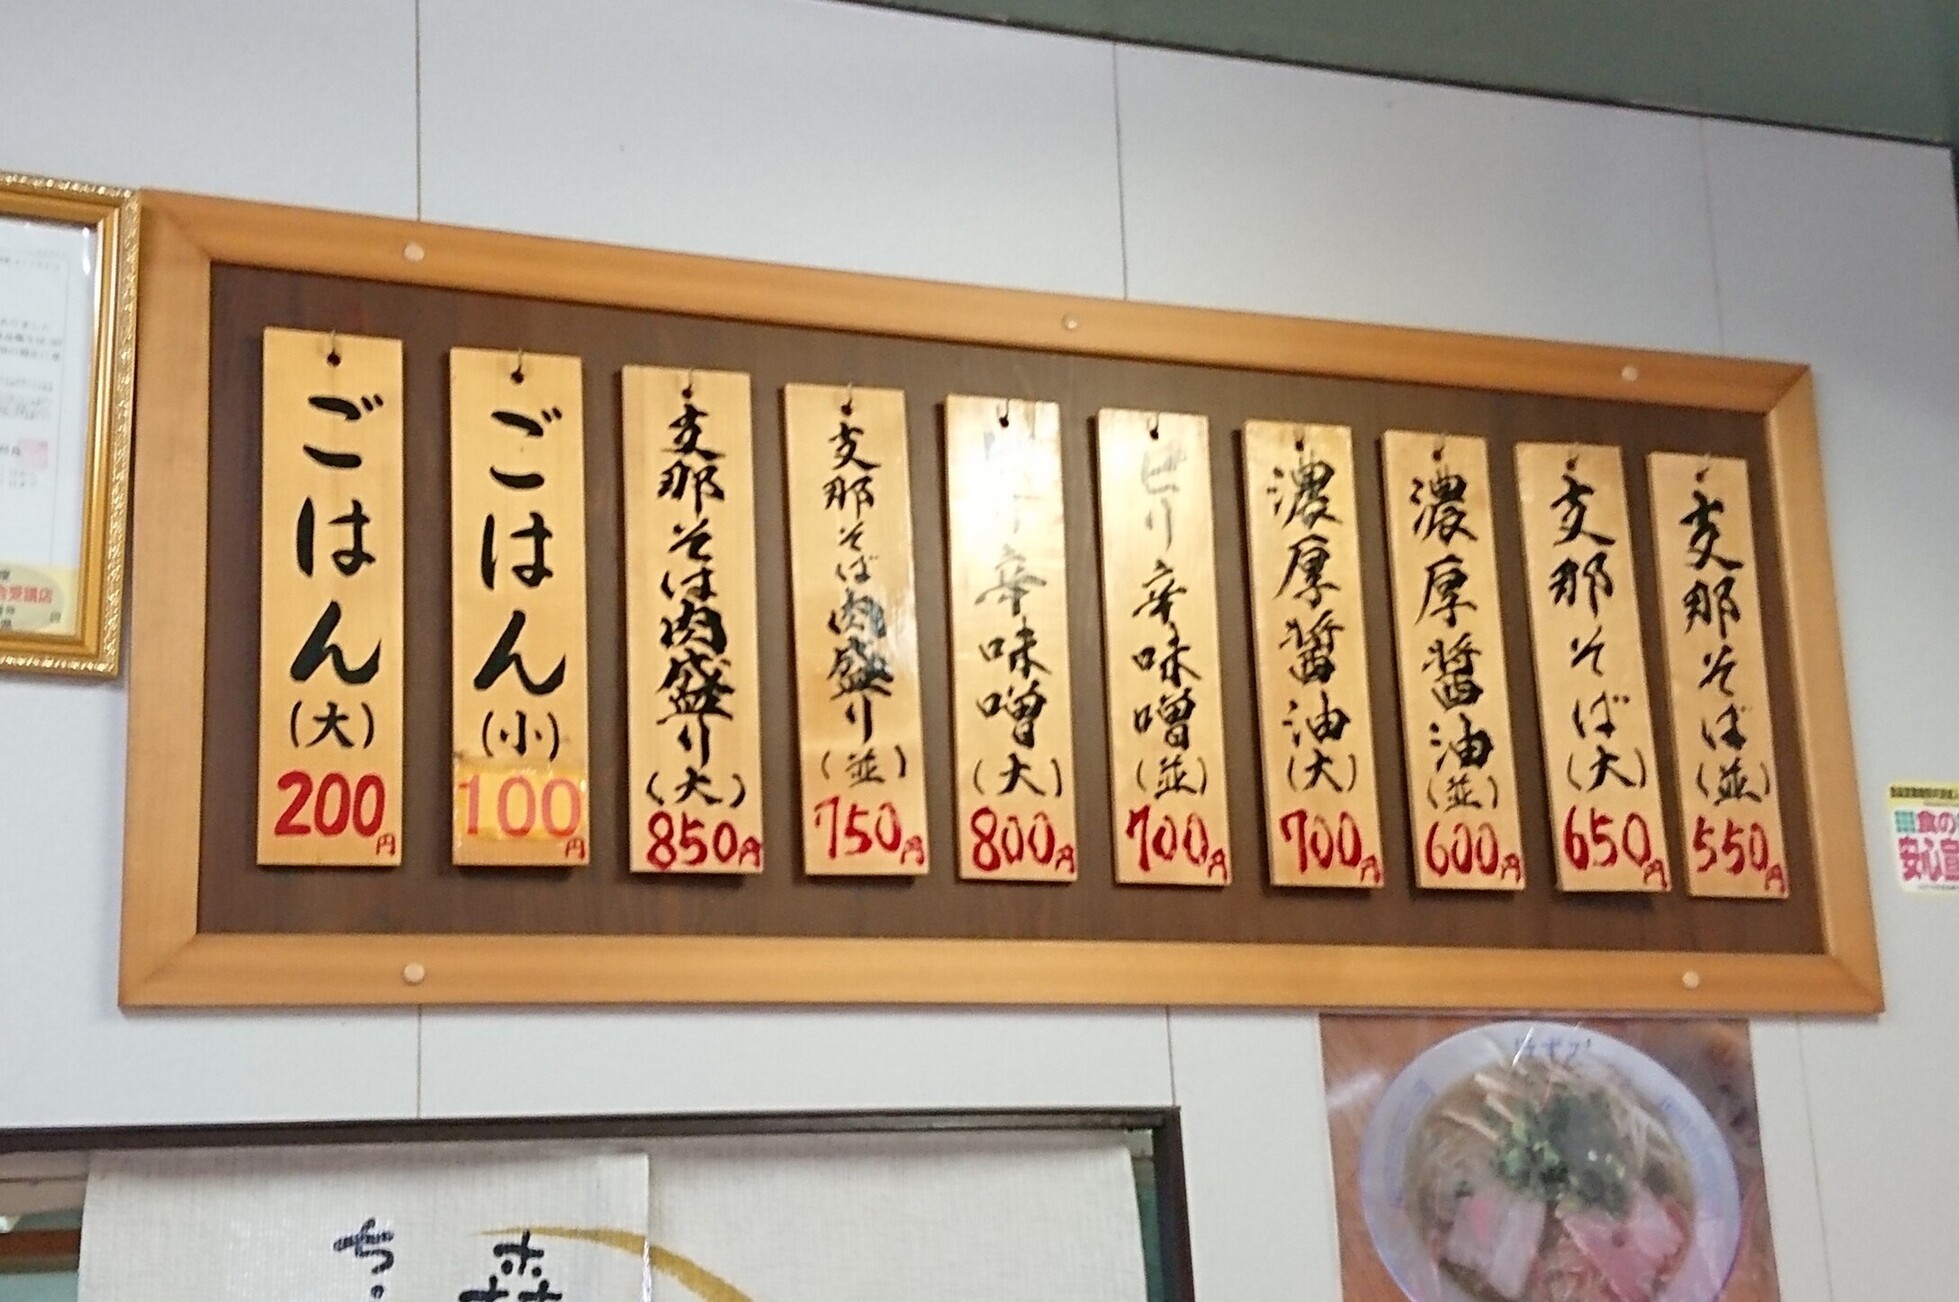 支那そば(並)550円
支那そば(大)650円
濃厚醤油(並)600円
濃厚醤油(大)700円
ピリ辛味噌(並)700円
辛味噌(大)800円
支那そば肉盛り(並)750円
支那そば肉盛り(大)850円
ごはん(小)100円
ごはん(大)200円
食の
安心
受講店